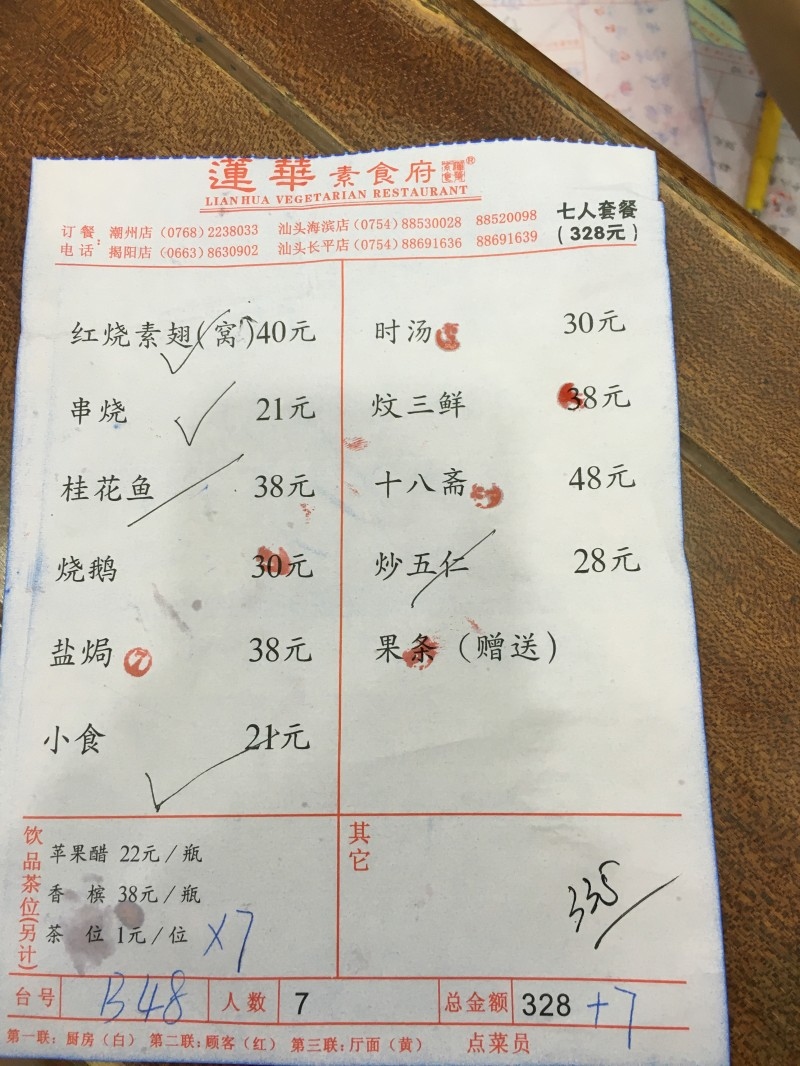 蓮華素食府®
LIANHUA VEGETARIAN RESTAURANT
订餐电话：
潮州店（0768）2238033 汕头海滨店（0754）88530028 88520098
揭阳店（0663）8630902 汕头长平店（0754）88691636 88691639
七人套餐
（328元）
红烧素翅（窝）40元
串烧 21元
桂花鱼 38元
烧鹅 30元
盐焗 38元
小食 21元
时汤 30元
炆三鲜 38元
十八斋 48元
炒五仁 28元
果条（赠送）
饮品茶位（另计）
苹果醋 22元/瓶
香槟 38元/瓶
茶位 1元/位 X7
其它
台号 B48 人数 7 总金额 328 +7
第一联：厨房（白） 第二联：顾客（红） 第三联：厅面（黄） 点菜员